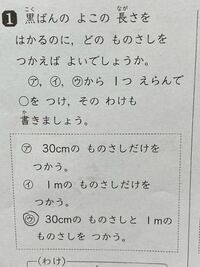 1 黒ばんの よこの 長さを
はかるのに，どの ものさしを
つかえば よいでしょうか。
㋐，㋑，㋒から 1つ えらんで
○を つけ，その わけも
書きましょう。
㋐ 30cmの ものさしだけを
つかう。
㋑ 1mの ものさしだけを
つかう。
㋒ 30cmの ものさしと 1mの
ものさしを つかう。
(わけ)